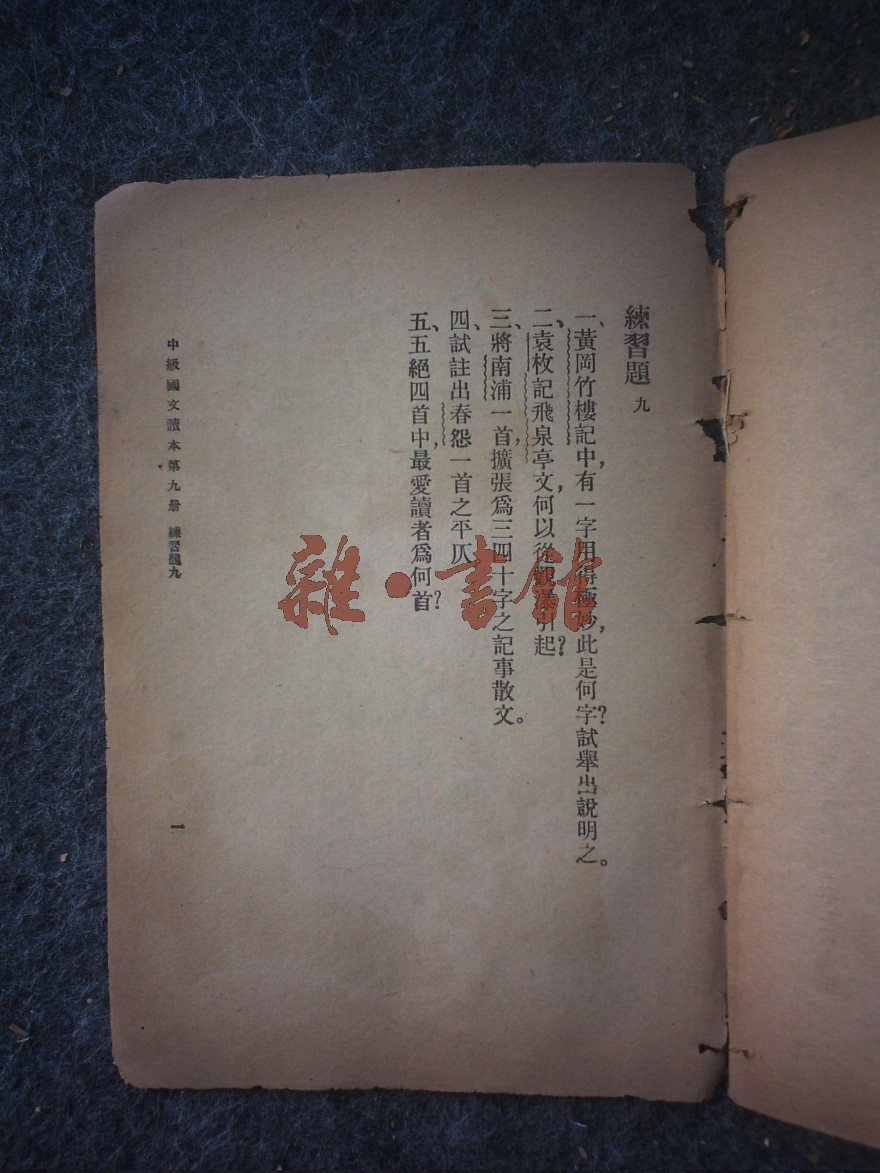 練習題 九
一、黃岡竹樓記中，有一字用得極妙，此是何字？試舉出說明之。
二、袁枚記飛泉亭文，何以從觀瀑引起？
三、將南浦一首，擴張爲三四十字之記事散文。
四、試註出春怨一首之平仄
五、五絕四首中，最愛讀者爲何首？
中級國文讀本第九册 練習題九
一
雜·書館